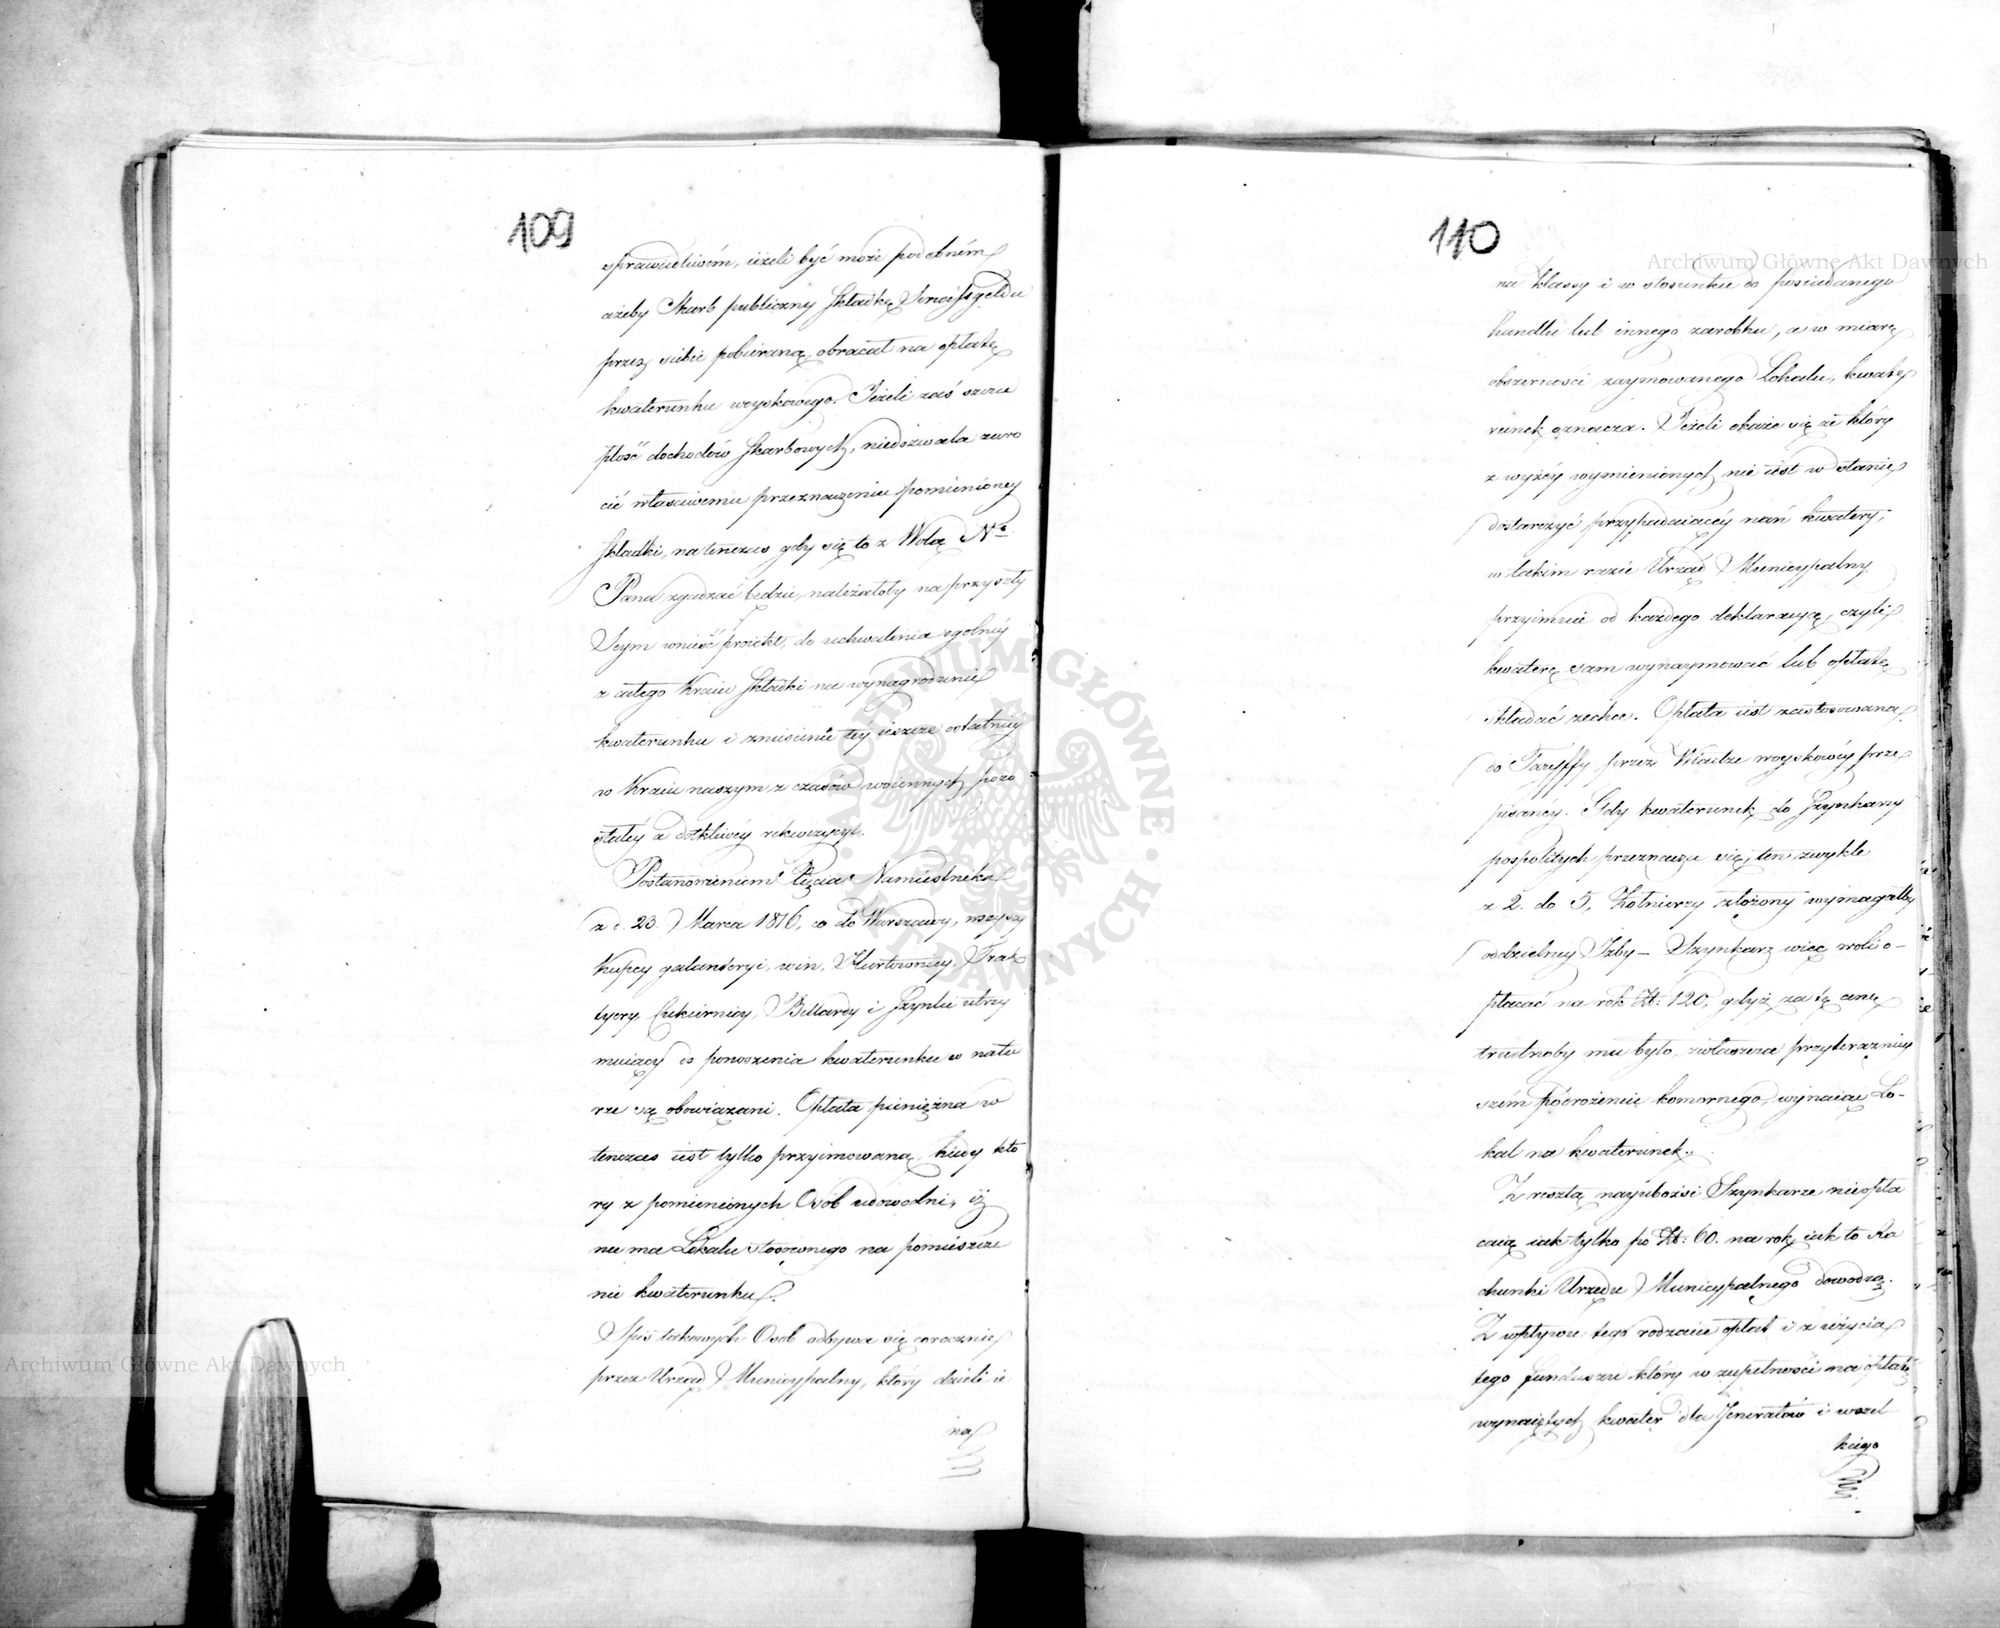 109
sprawiedliwém, ieżeli być może podobném
ażeby Skarb publiczny składkę Serwisgeldu
przez siebie pobieraną, obracał na opłatę
kwaterunku woyskowego. Jeżeli zaś szczu
płość dochodów skarbowych, niedozwala zwró
cić właściwemu przeznaczeniu pomienioney
składki, natenczas gdy się to z Wolą No
Pana zgadzać będzie, należałoby na przyszły
Seym wnieść proiekt, do uchwalenia ogolnéy
z całego Kraiu składki na wynagrodzenie
kwaterunku i zniesienie téy ieszcze ostatniéy
w Kraiu naszym z czasów woiennych pozo
stałéy a dotkliwéy rekwizycyi.
Postanowieniem Xięcia Namiestnika
z d. 23. Marca 1816, co do Warszawy, wszyscy
Kupcy galanteryi, win, Hurtownicy, Trak
tyery, Cukiernicy, Billardy i Szynki utrzy
muiący do ponoszenia kwaterunku w natu
rze są obowiązani. Opłata pieniężna w
tenczas iest tylko przyimowaną, kiedy któ
ry z pomienionych Osób udowodni, iż
nie ma Lokalu stosownego na pomieszcze
nie kwaterunku.
Spis takowych Osób odbywa się corocznie
przez Urząd Municypalny, który dzieli ie
na
110
na klassy i w stosunku do posiadanego
handlu lub innego zarobku, a w miarę
obszerności zaymowanego Lokalu, kwate
runek oznacza. Jeżeli okaże się że który
z wyżéy wymienionych nie iest w stanie
dostarczyć przypadaiącéy nań kwatery,
w takim razie Urząd Municypalny
przyimuie od każdego deklaracyę, czyli
kwaterę sam wynaymować lub opłatę
składać zechce. Opłata iest zastosowana
do Taryffy przez Władze woyskowéy prze
pisanéy. Gdy kwaterunek do Szynkarzy
pospolitych przeznacza się, ten zwykle
z 2. do 5, Żołnierzy złożony wymagałby
oddzielney Izby – Szynkarz więc woli o–
płacać na rok Zł: 120, gdyż za tę cenę
trudnoby mu było, zwłaszcza przy teraźniey
szém podrożeniu komornego, wynaiąć Lo–
kal na kwaterunek.
Z resztą nayubożsi Szynkarze nieopła
caią iak tylko po Zł: 60. na rok, iak to Ra
chunki Urzędu Municypalnego dowodzą.
Z wpływu tego rodzaiu opłat i z użycia
tego funduszu który w zupełności na opłatę
wynaiętych kwater dla Jenerałów i wszel
kiego
Archiwum Główne Akt Dawnych
Archiwum Główne Akt Dawnych
ARCHIWUM GŁÓWNE AKT DAWNYCH